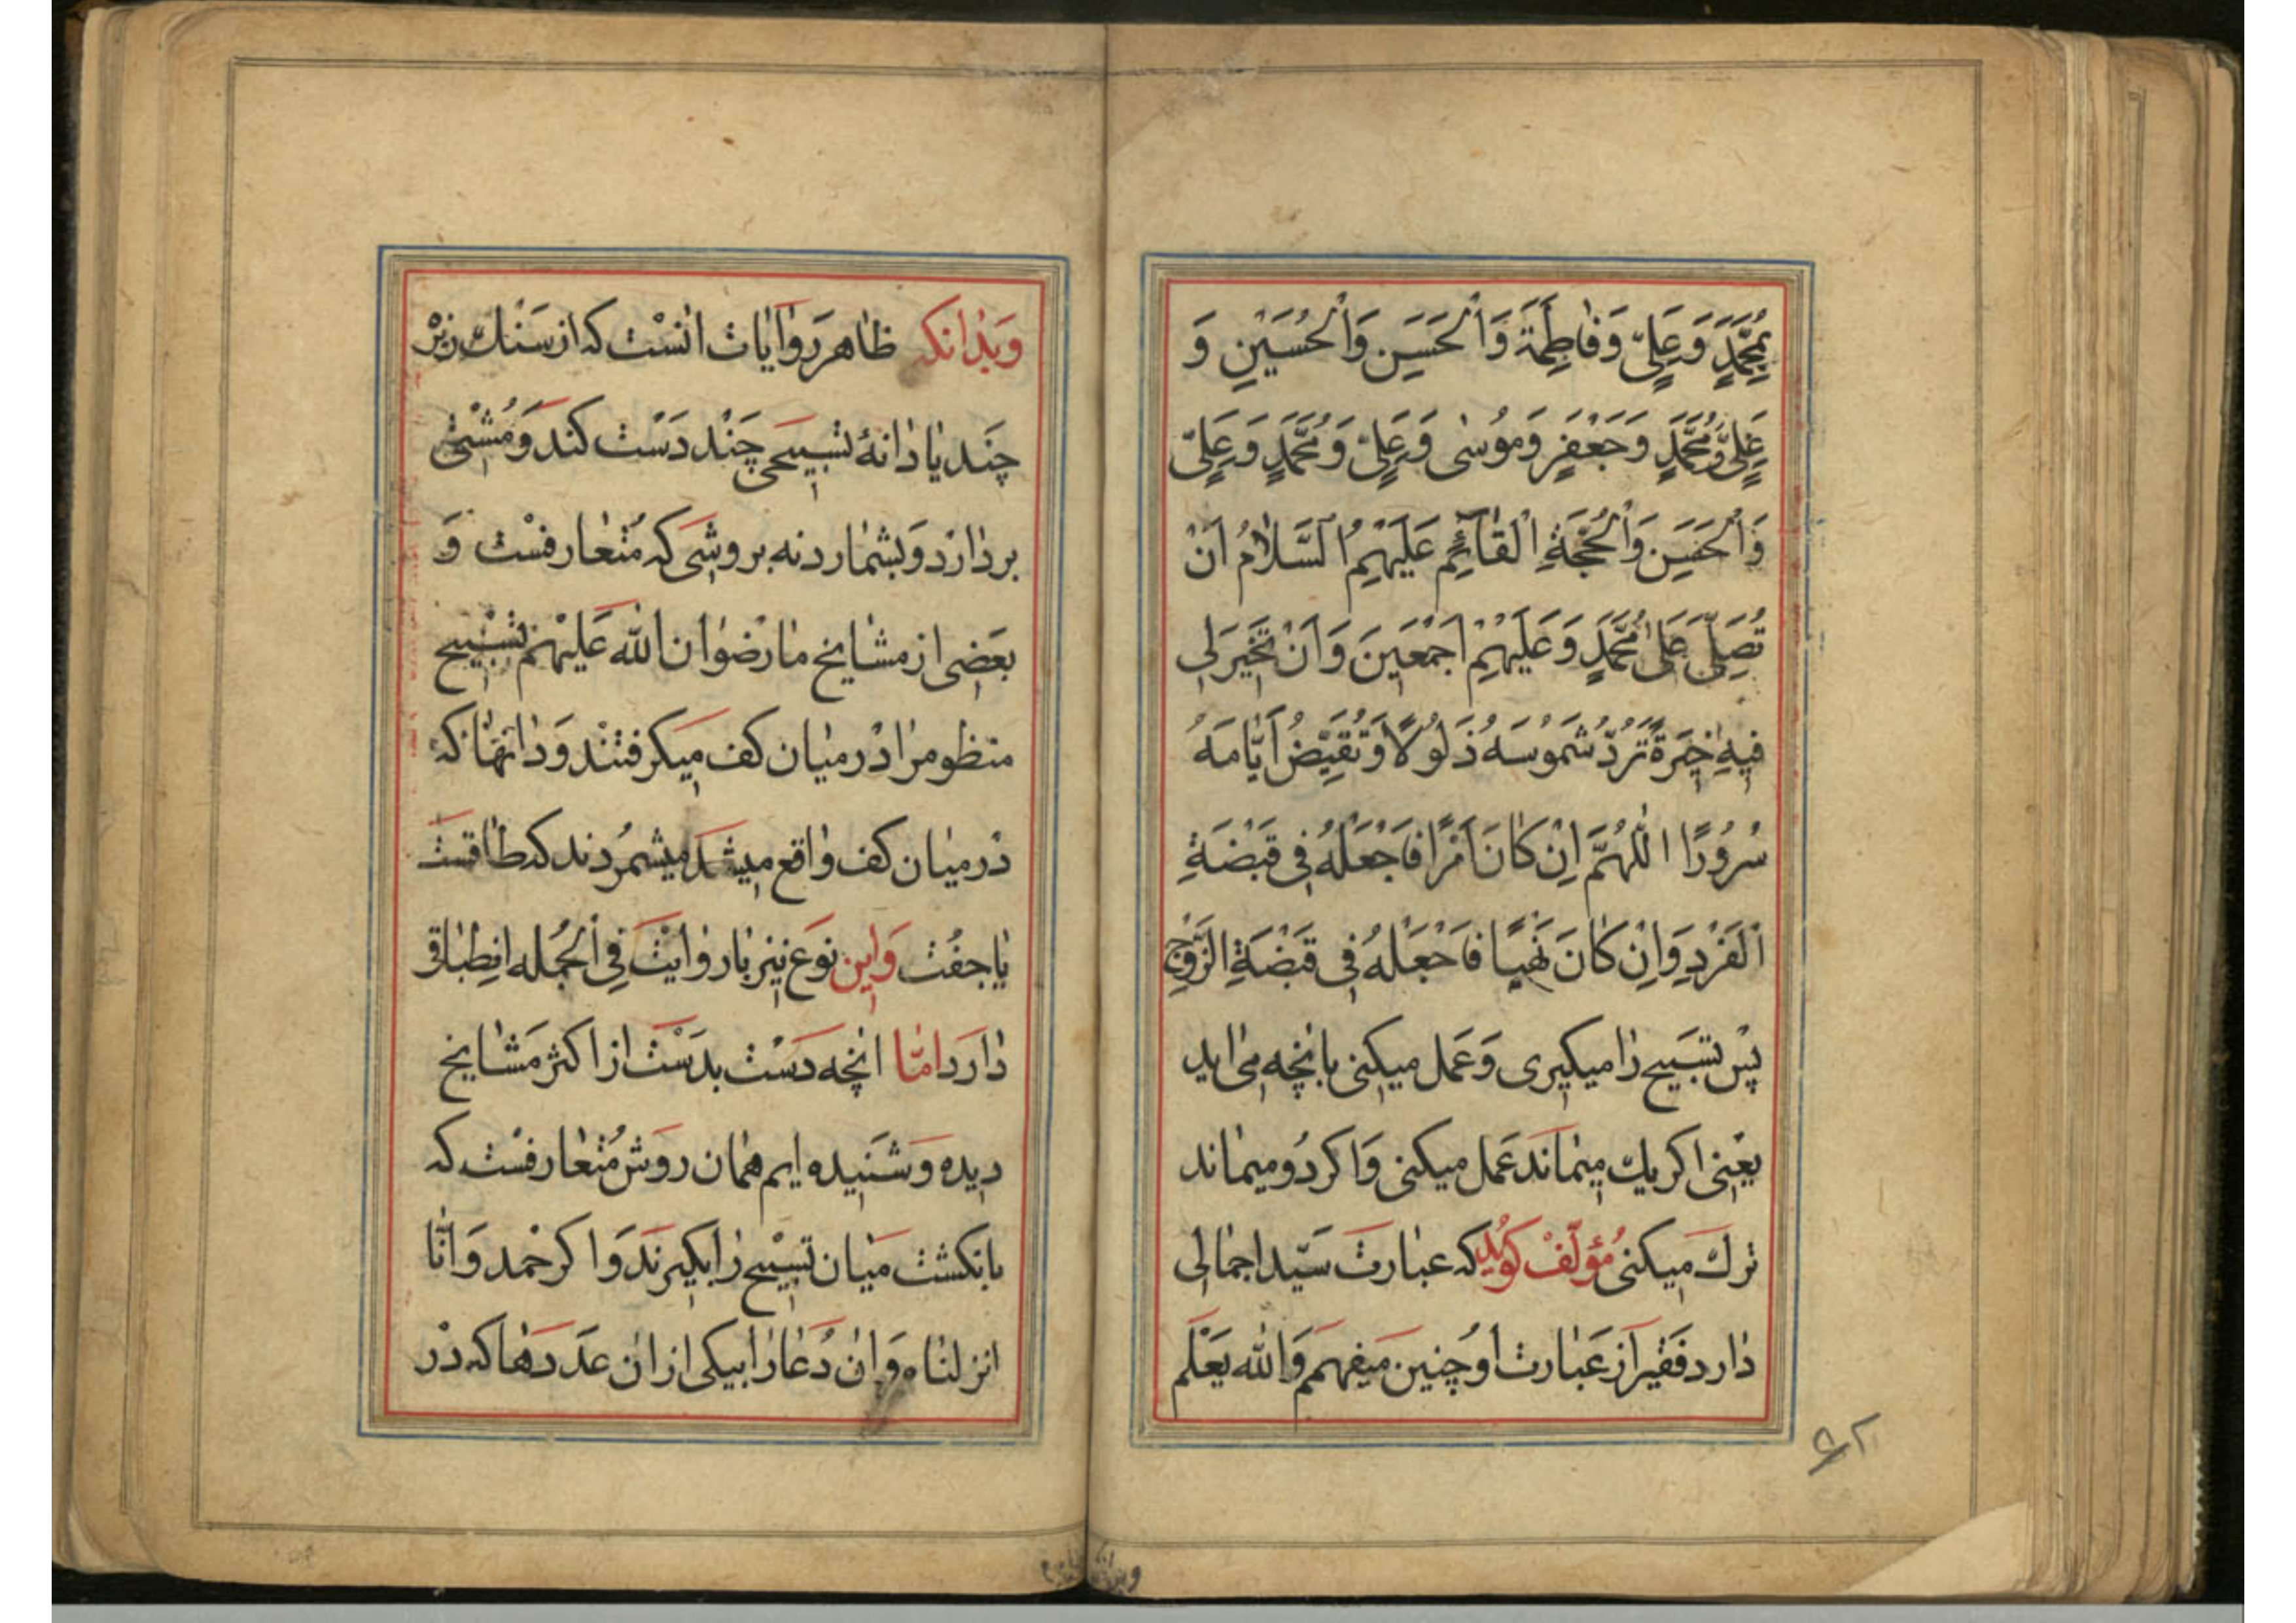 بِمُحَمَّدٍ وَعَلِیٍّ وَفَاطِمَةَ وَالْحَسَنِ وَالْحُسَیْنِ وَ
عَلِیٍّ وَمُحَمَّدٍ وَجَعْفَرٍ وَمُوسٰی وَعَلِیٍّ وَمُحَمَّدٍ وَعَلِیٍّ
وَالْحَسَنِ وَالْحُجَّةِ الْقَائِمِ عَلَیْهِمُ السَّلَامُ اَنْ
تُصَلِّیَ عَلٰی مُحَمَّدٍ وَعَلَیْهِمْ اَجْمَعِینَ وَاَنْ تَخِیَرَ لِی
فِیهِ خِیَرَةً تَرُدُّ شَمُوسَهُ ذَلُولًا وَتُقَیِّضُ اَیَّامَهُ
سُرُورًا اللّٰهُمَّ اِنْ کَانَ اَمْرًا فَاجْعَلْهُ فِی قَبْضَةِ
الْفَرْدِ وَاِنْ کَانَ نَهْیًا فَاجْعَلْهُ فِی قَبْضَةِ الزَّوْجِ
پس تسبیح را میکیری وَعَمل میکنی بانچه می اید
یعنی اکر یك میماند عَمل میکنی وَاکر دُو میماند
ترك میکنی مُؤلّفْ کوُید که عبارت سَیّد اجمالی
دارد فَقیر از عَبارت اوُ چنین میفهمم وَالله یَعْلَم
وَبدانکه ظاهر رَوایات انسْت که از سَنْك ریزْ
چَند یا دانهٔ تسبیحی چَنْد دَسْت کند وَمُشتی
بردارَد وَبشمارد نه بروشی که مُتعارفسْت وَ
بعَضی از مشایخ ما رضْوان الله عَلیْهم تسْبیح
منظوم را دْر میان کف میکرفتنْد وَدانهٰا که
دْر میان کف واقع میشد میشمرُدند که طاقسَت
یا جفُت وَاین نَوع نیز با روایتْ فِی الجُمله انطِباقی
دارَد امّا انچه دَسْت بدَسْت از اکثر مَشایخ
دیده وَشنَیده ایم همان روَش مُتعارفسْت که
بانکشت میان تسْبیح را بکیرنَد وَاکر حْمد وَانّا
انزلناه وَان دُعا را بیکی از ان عدَدهَا که دْر